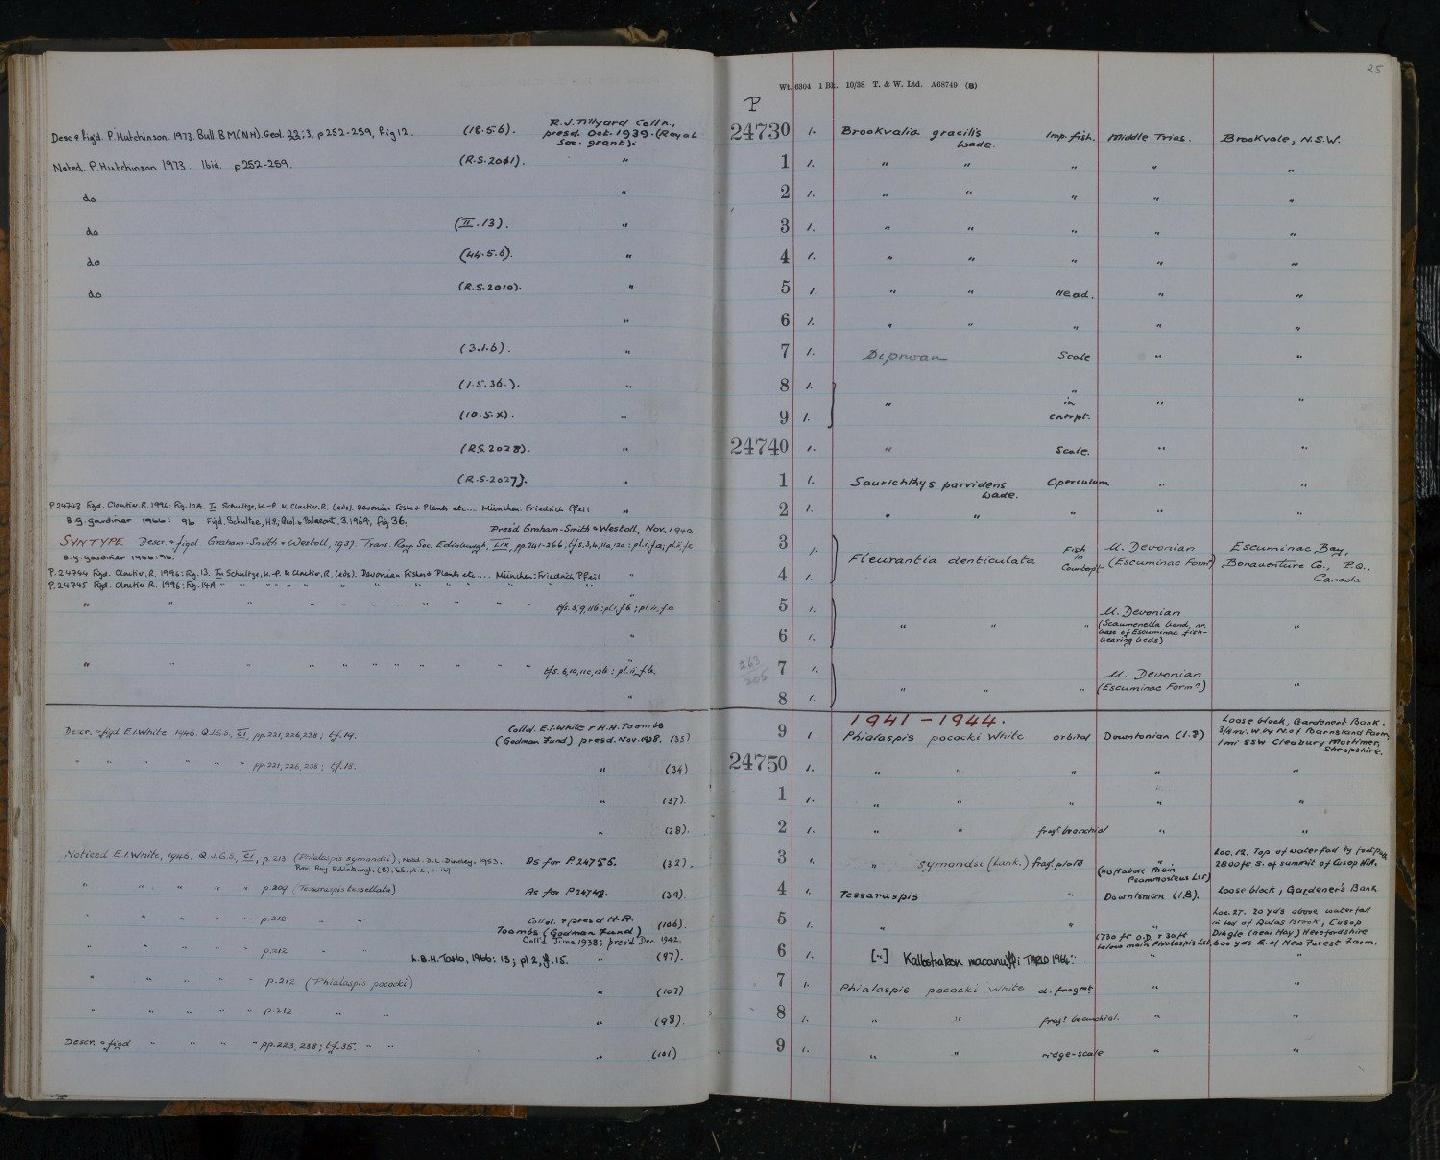 25
Wt. 6304 1 Bk. 10/38 T. & W. Ltd. A68749 (B)
P
Desc & figd. P. Hutchinson. 1973. Bull. B M (N H). Geol. 22:3. p 252-259, fig 12. (18.5.6). R. J. Tillyard Colln., presd. Oct. 1939. (Royal Soc. grant). 24730 1. Brookvalia gracilis Wade. Imp. fish. Middle Trias. Brookvale, N.S.W.
Noted. P. Hutchinson 1973. Ibid. p252-259. (R.S. 2041) " 1 1. " " " " "
do " 2 1. " " " " "
do (II.13). " 3 1. " " " " "
do (44.5.6). " 4 1. " " " " "
do (R.S.2010). " 5 1. " " Head. " "
" 6 1. " " " " "
(3.1.6). " 7 1. Dipnoan Scale " "
(1.5.36.). " 8 1. " " in " "
(10.5.X). " 9 1. cntrpt.
(R.S.2028). " 24740 1. " Scale. " "
(R.S.2027). " 1 1. Saurichthys parvidens Wade. Operculum " "
P 24743 figd. Cloutier, R. 1996: fig. 12A. In Schultze, H.-P. & Cloutier, R. (eds). Devonian Fishes & Plants etc... München: Friedrich Pfeil " 2 1. " " " "
B.G. Gardiner 1966: 96 Figd. Schultze, H.P.; Qiol. & Palaeont. 3. 1969, fig 36. Presd Graham-Smith & Westoll, Nov. 1940
SYNTYPE Descr. & figd Graham-Smith & Westoll, 1937. Trans. Roy. Soc. Edinburgh, LIX, pp. 241-266, 3 1. Fleurantia denticulata Fish in Countept. M. Devonian (Escuminac Formn) Escuminac Bay, Bonaventure Co., P.Q., Canada
B.G. Gardiner 1966: 96.
P. 24744 figd. Cloutier, R. 1996: fig. 13. In Schultze, H.-P. & Cloutier, R. (eds). Devonian Fishes & Plants etc.... München: Friedrich Pfeil " 4 1.
P. 24745 figd. Cloutier R. 1996: fig. 14A " " " " " "
" " " " " " " 5 1. " " " M. Devonian (Scaumenella band, nr. base of Escuminac fish-bearing beds) "
" 6 1.
" " " " " " " 263/205 7 1. " " " M. Devonian (Escuminac Formn) "
" 8 1.
1941 - 1944.
Descr. & figd E.I. White 1946. Q.J.G.S., CI, pp. 221, 226, 238; tf. 19. Colld. E.I. White & H.H. Toombs (Godman Fund) presd. Nov. 1938. (35) 9 1 Phialaspis pococki White orbital Downtonian (1.8) Loose block, Gardener's Bank, 3/4 mi. W. by N. of Barnsland Farm, 1 mi SSW Cleobury Mortimer, Shropshire.
" " " " " pp. 221, 226, 238; tf. 18. " (34) 24750 1. " " " " "
" (37). 1 1. " " " " "
" (38). 2 1. " " fragt branchial " "
Noticed E.I. White, 1946. Q.J.G.S, CI, p. 213 (Phialaspis symondsi), Notd. D.L. Dineley. 1953. As for P24756. (32). 3 1. " symondsi (Lank.) frag. plate " Loc. 12. Top of waterfall by footpath, 2800 ft S. of summit of Cusop Hill.
" " " " " p. 209 (Tesseraspis tessellata) As for P24749. (39). 4 1. Tesseraspis " Downtonian (1.8). Loose block, Gardener's Bank
" " " " " p. 210 " " Colld. & presd H.A. Toombs (Godman Fund) Coll'd June 1938; pres'd Dec. 1942. (106). 5 1. " " Loc. 27. 20 yds above waterfall in bed of Dulas Brook, Cusop Dingle (near Hay) Herefordshire 600 yds E. of New Forest Farm.
" " " " " p. 212 L.B.H. Tarlo, 1966: 13; pl 2, f. 15. " (97). 6 1. ["] Kallostrakon macanuffi TARLO 1964: " "
" " " " " p. 212 (Phialaspis pococki) " (102) 7 1. Phialaspis pococki White d. fragmt " "
" " " " " p. 212 " " " (98). 8 1. " " fragt branchial. " "
Descr. & figd " " " " pp. 223, 238; tf. 35. " " " (101) 9 1. " " ridge-scale " "